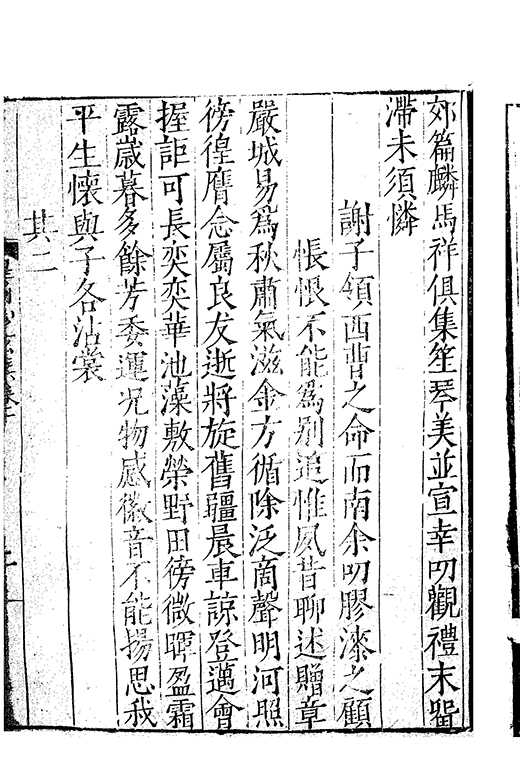 郊篇麟馬祥俱集笙琴美並宣幸叨觀禮末留
滯未須憐
謝子領西曹之命而南余叨膠漆之顧
悵悢不能爲别追惟夙昔聊述贈章
嚴城易爲秋肅氣滋金方循除泛商聲明河照
徬徨膺念屬良友逝將旋舊疆晨車諒登邁會
握詎可長奕奕華池藻敷榮野田徬微暉盈霜
露歳暮多餘芳委運况物感徽音不能揚思我
平生懷與子各沾裳
其二